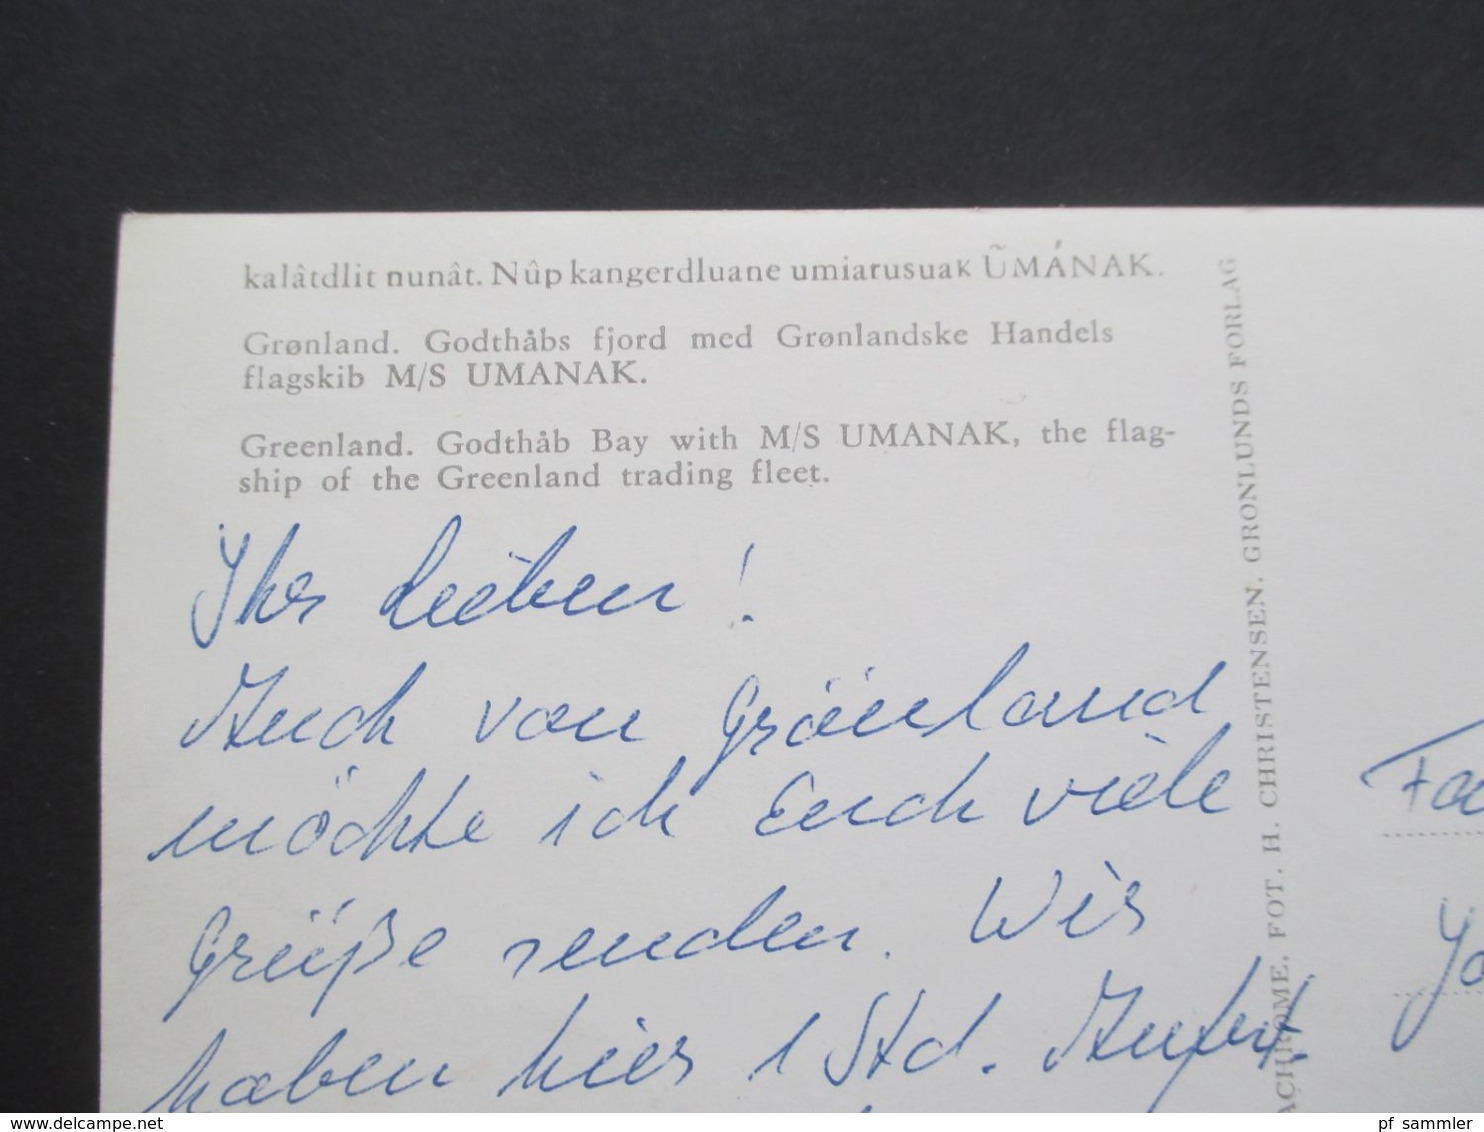 kalâtdlit nunât. Nûp kangerdluane umiarusuaĸ ŨMÁNAK.
Grønland. Godthåbs fjord med Grønlandske Handels
flagskib M/S UMANAK.
Greenland. Godthåb Bay with M/S UMANAK, the flag-
ship of the Greenland trading fleet.
Ihr Lieben!
Auch von Grönland
möchte ich Euch viele
Grüße senden. Wir
haben hier 1 Std. Aufent.
ACHROME. FOT. H. CHRISTENSEN. GRONLUNDS FORLAG
Fa
delcampe.net
pf_sammler